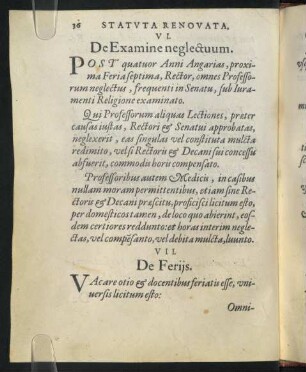 36 STATVTA RENOVATA.
VI.
De Examine neglectuum.
POST quatuor Anni Angarias, proxi-
ma Feria septima, Rector, omnes Professo-
rum neglectus, frequenti in Senatu, sub Iura-
menti Religione examinato.
Qui Professorum aliquas Lectiones, preter
causas iustas, Rectori & Senatui approbatas,
neglexerit, eas singulas vel constituta mulcta
redimito, vel si Rectoris & Decani sui concessu
abfuerit, commodis horis compensato.
Professoribus autem Medicis, in casibus
nullam moram permittentibus, etiam sine Re-
ctoris & Decani præscitu, proficisci licitum esto,
per domesticos tamen, de loco quo abierint, eos-
dem certiores reddunto: et horas interim negle-
ctas, vel compẽsanto, vel debita mulcta, luunto.
VII.
De Ferijs.
VAcare otio & docentibus feriatis esse, vni-
uersis licitum esto:
Omni-